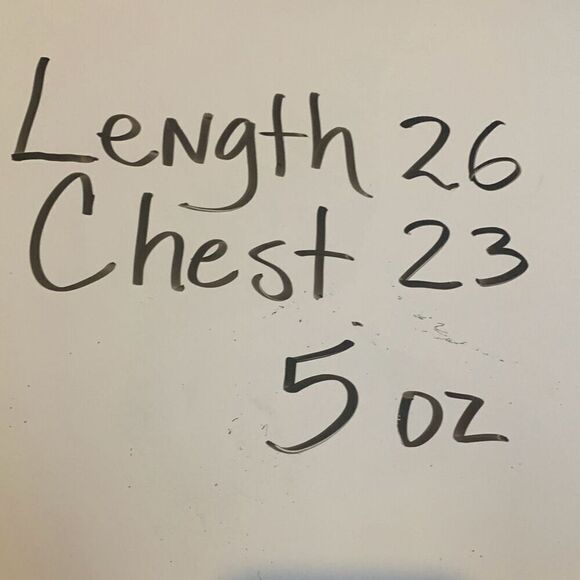 Length 26
Chest 23
5 oz